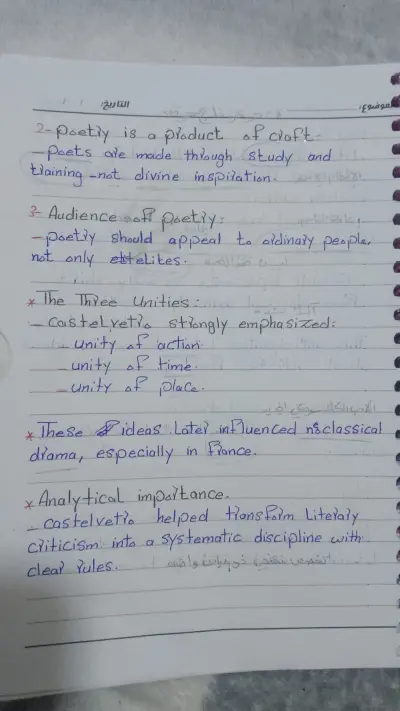 الموضوع: التاريخ: / /
2- poetry is a product of craft:
- poets are made through study and
training - not divine inspiration.
3- Audience off poetry:
- poetry should appeal to ordinary people,
not only elites.
* The Three Unities:
- castelvetro strongly emphasized:
- unity of action.
- unity of time.
- unity of place.
* These ideas later influenced nsclassical
drama, especially in france.
* Analytical importance.
- castelvetro helped transform Literary
criticism into a systematic discipline with
clear rules.